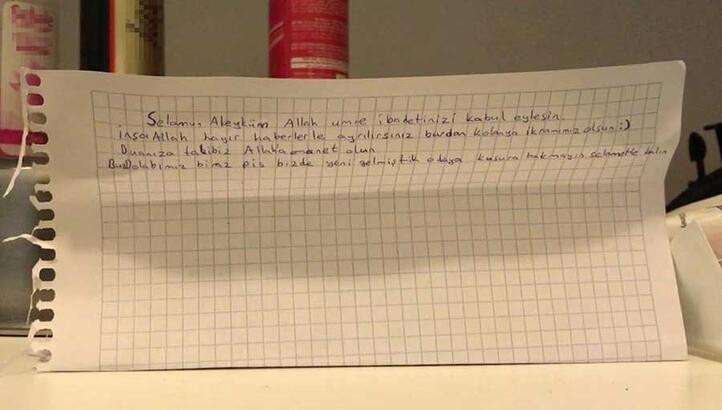 Selamu, Aleyküm Allah umre ibadetinizi kabul eylesin
inşaAllah hayır haberlerle ayrılırsınız burdan kolonya ikramımız olsun :)
Duanıza talibiz Allaha emanet olun
Buzdolabımız biraz pis bizde yeni gelmiştik odaya kusura bakmayın selametle kalın